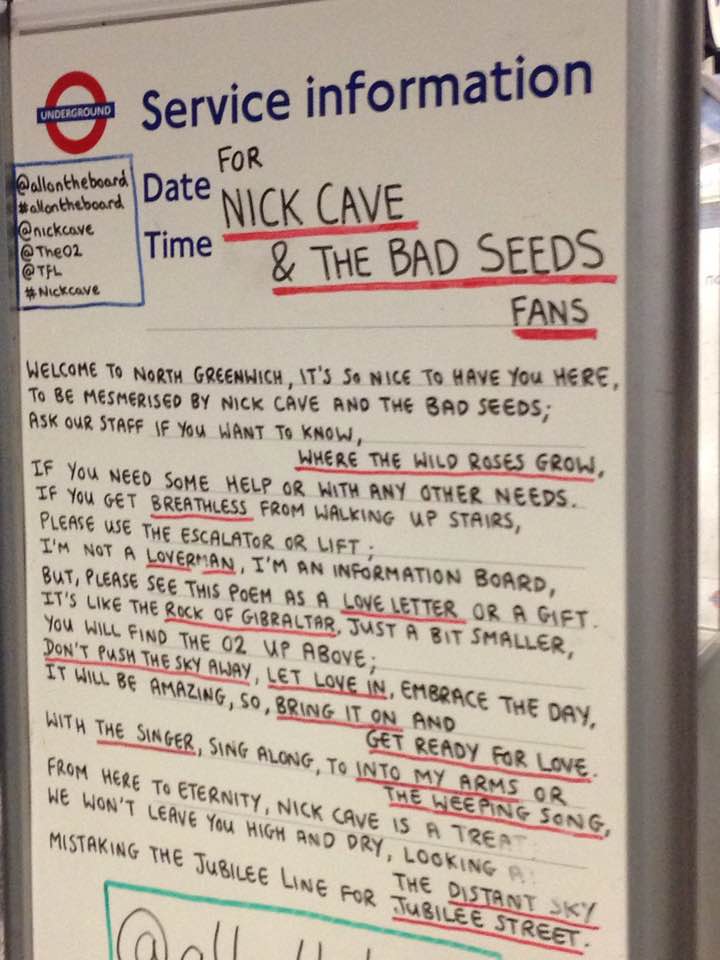 UNDERGROUND
Service information
@allontheboard
#allontheboard
@nickcave
@TheO2
@TFL
#Nickcave
Date FOR
NICK CAVE
Time
& THE BAD SEEDS
FANS
WELCOME TO NORTH GREENWICH, IT'S SO NICE TO HAVE YOU HERE,
TO BE MESMERISED BY NICK CAVE AND THE BAD SEEDS;
ASK OUR STAFF IF YOU WANT TO KNOW,
WHERE THE WILD ROSES GROW,
IF YOU NEED SOME HELP OR WITH ANY OTHER NEEDS.
IF YOU GET BREATHLESS FROM WALKING UP STAIRS,
PLEASE USE THE ESCALATOR OR LIFT;
I'M NOT A LOVERMAN, I'M AN INFORMATION BOARD,
BUT, PLEASE SEE THIS POEM AS A LOVE LETTER OR A GIFT.
IT'S LIKE THE ROCK OF GIBRALTAR, JUST A BIT SMALLER,
YOU WILL FIND THE O2 UP ABOVE;
DON'T PUSH THE SKY AWAY, LET LOVE IN, EMBRACE THE DAY,
IT WILL BE AMAZING, SO, BRING IT ON AND
GET READY FOR LOVE.
WITH THE SINGER, SING ALONG, TO INTO MY ARMS OR
THE WEEPING SONG,
FROM HERE TO ETERNITY, NICK CAVE IS A TREAT
WE WON'T LEAVE YOU HIGH AND DRY, LOOKING
THE DISTANT SKY
MISTAKING THE JUBILEE LINE FOR JUBILEE STREET.